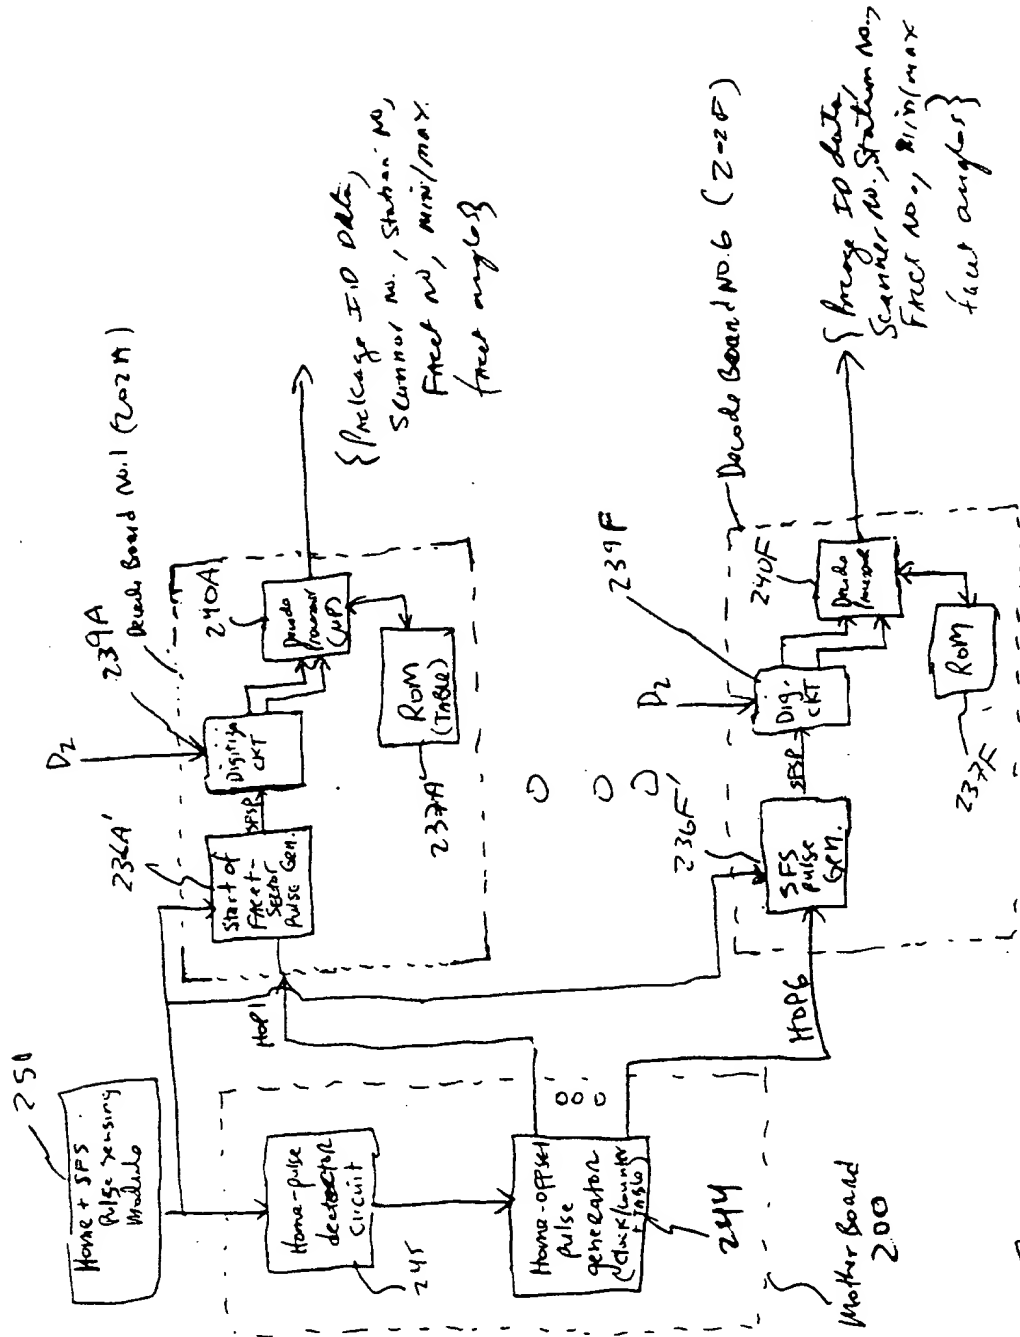 250
Home + SFS
Pulse sensing
Module
Home-pulse
detector
circuit
245
Home-offset
pulse
generator
(clock/counter
+ TABLE)
244
Mother Board
200
HOP1
HOP6
236A'
Start of
Facet-
Sector
Pulse Gen.
SFSP
D2
239A
Digitize
CKT
Decode Board No.1 (202A)
240A
Decode
Processor
(µP)
ROM
(TABLE)
237A
{Package I.D DATA,
Scanner no., Station NO,
Facet NO, min/max.
facet angles}
236F'
SFS
pulse
Gen.
SFSP
D2
239F
Dig.
CKT
Decode Board NO.6 (2-2F)
240F
Decode
ROM
237F
{Package ID data,
Scanner NO., Station No.,
Facet NO., min/max
facet angles}